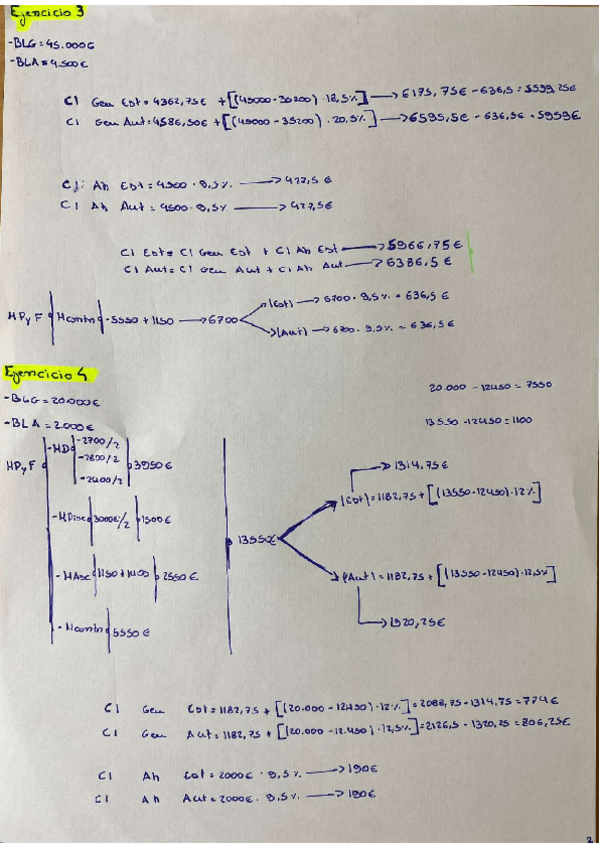 Ejercicio 3
-BLG = 45.000€
-BLA = 4.500€
CI Gen Est = 4362,75€ + [(45000-35200) · 18,5%] → 6175,75€ - 636,5 = 5539,25€
CI Gen Aut = 4586,50€ + [(45000-35200) · 20,5%] → 6595,5€ - 636,5€ = 5959€
CI Ah Est = 4500 · 9,5% → 427,5€
CI Ah Aut = 4500 · 9,5% → 427,5€
CI Est = CI Gen Est + CI Ah Est → 5966,75€
CI Aut = CI Gen Aut + CI Ah Aut → 6386,5€
(Est) → 6700 · 9,5% = 636,5€
HPyF Mcontr -5550 + 1150 → 6700
(Aut) → 6700 · 9,5% = 636,5€
Ejercicio 4
20.000 - 12450 = 7550
-BLG = 20.000€
13550 - 12450 = 1100
-BLA = 2.000€
-2700/2
-MD -2800/2 3950€
-2400/2
HPyF
→ 1314,75€
(Est) = 1182,75 + [(13550-12450) · 12%]
-MDisc 3000€/2 1500€
13550€
-MAsc 1150 + 1400 2550€
(Aut) = 1182,75 + [(13550-12450) · 12,5%]
-Mcontr 5550€
→ 1320,25€
CI Gen Est = 1182,75 + [(20.000 - 12450) · 12%] = 2088,75 - 1314,75 = 774€
CI Gen Aut = 1182,75 + [(20.000 - 12.450) · 12,5%] = 2126,5 - 1320,25 = 806,25€
CI Ah Est = 2000€ · 9,5% → 190€
CI Ah Aut = 2000€ · 9,5% → 190€
2